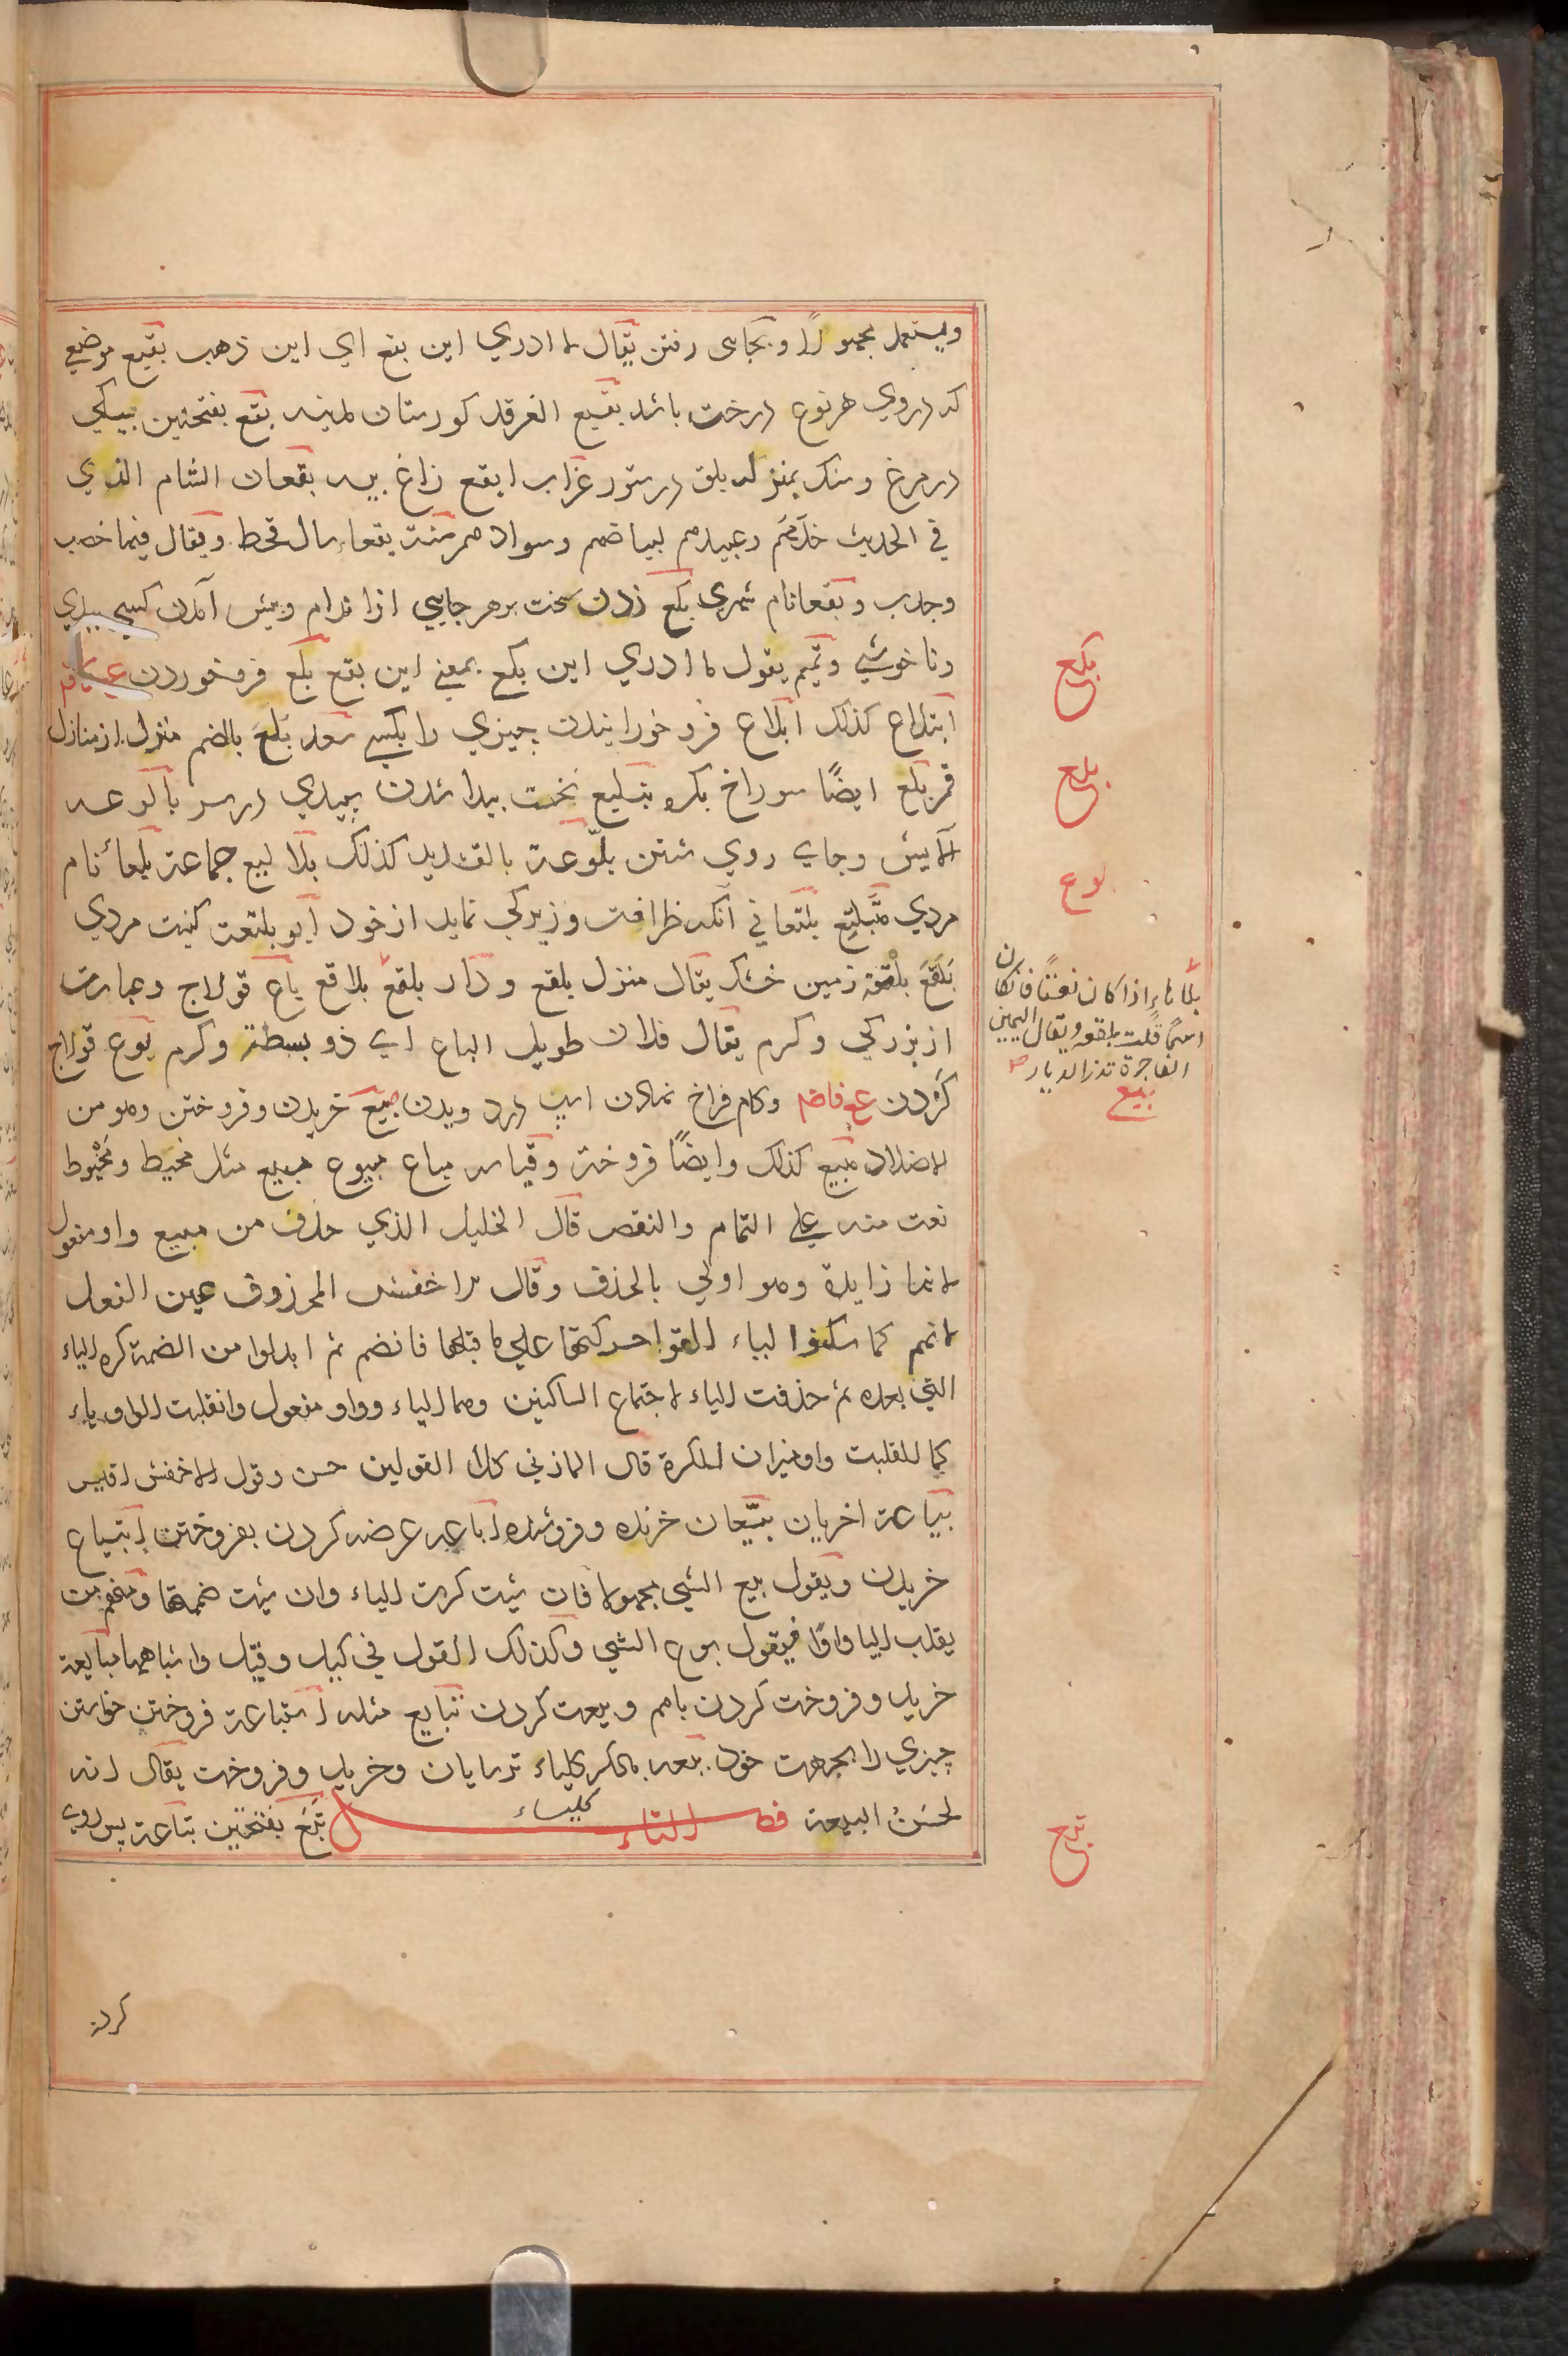 ويستعمل مجهولا وبجاى رفتن يقال لا ادري اين بقع اي اين ذهب بقيع موضعي
كه دروي هر نوع درخت باشد بقيع الغرقد كورستان مدينه بقع بفتحتين بيسكي
در مرغ وسك بمنزله بلق در ستور غراب ابقع زاغ بيسه بقعان الشام الذي
في الحديث خدمهم وعبيدهم لبياضهم وسوادهم سنة بقعاء سال قحط ويقال فيها خصب
وجدب وبقعا نام شهرى بكع زدن سخت بر هر جايي از اندام وپيش آمدن كسي ببدي
وناخوشي وتميم يقول لا ادري اين بكع بمعني اين بقع بلع فروخوردن
ابتلاع كذلك ابلاع فروخورانيدن چيزي را بكسي سعد بلع بالضم منزل از منازل
قمر بلع ايضًا سوراخ بكره تبليع نخست پيدا شدن سپيدي در سر بالوعه
آلايش وجاى روي شستن بلّوعة بالتشديد كذلك بلاليع جماعة بلعاء نام
مردي متبلتع بلتعاني آنكه ظرافت وزيركي نمايد از خود ابو بلتعت كنيت مردي
بلقع بلقعة زمين خشك يقال منزل بلقع ودار بلقع بلاقع باع قولاج وعبارت
از بزركي وكرم يقال فلان طويل الباع اي ذو بسطة وكرم بوع قولاج
كردن وكام فراخ نهادن اسپ در دويدن بيع خريدن وفروختن وهو من
الاضداد مبيع كذلك وايضًا فروخته وقياسه مباع مبيوع مبيع مثل مخيط ومخيوط
نعت منه علي التمام والنقص قال الخليل الذي حذف من مبيع واو مفعول
لانها زايدة وهو اولي بالحذف وقال الاخفش المحذوف عين الفعل
لانهم كما سكنوا لياء القوا حركتها علي ما قبلها فانضم ثم ابدلوا من الضمة كره الياء
التي بعده ثم حذفت الياء لاجتماع الساكنين وهما الياء وواو مفعول وانقلبت الواو ياء
كما انقلبت واو ميزان للكرة قال المازني كلا القولين حسن وقول الاخفش اقيس
بياعة اخريان بيّعان خرنده وفروشنده اباعه عرضه كردن بفروختن ابتياع
خريدن ويقول بيع الشي مجهولا فان شئت كرت الياء وان شئت ضمتها ومنهم من
يقلب اليا واوًا فيقول بوع الشي وكذلك القول في كيل وقيل واشباههما مبايعة
خريد وفروخت كردن باهم وبيعت كردن تبايع مثله استباعة فروختن خواستن
چيزي را بجهت خود بيعه بالكر كلياء ترسايان وخريد وفروخت يقال انه
كليساء
لحسن البيعة فصل التاء تبع بفتحتين تباعة پس روي
بكع
بلع
بوع
بلّا هاءٍ اذا كان نعتًا فان كان
اسمًا قلت بلقعه ويقال اليمين
الفاجرة تذر الديار
بيع
تبع
كردن